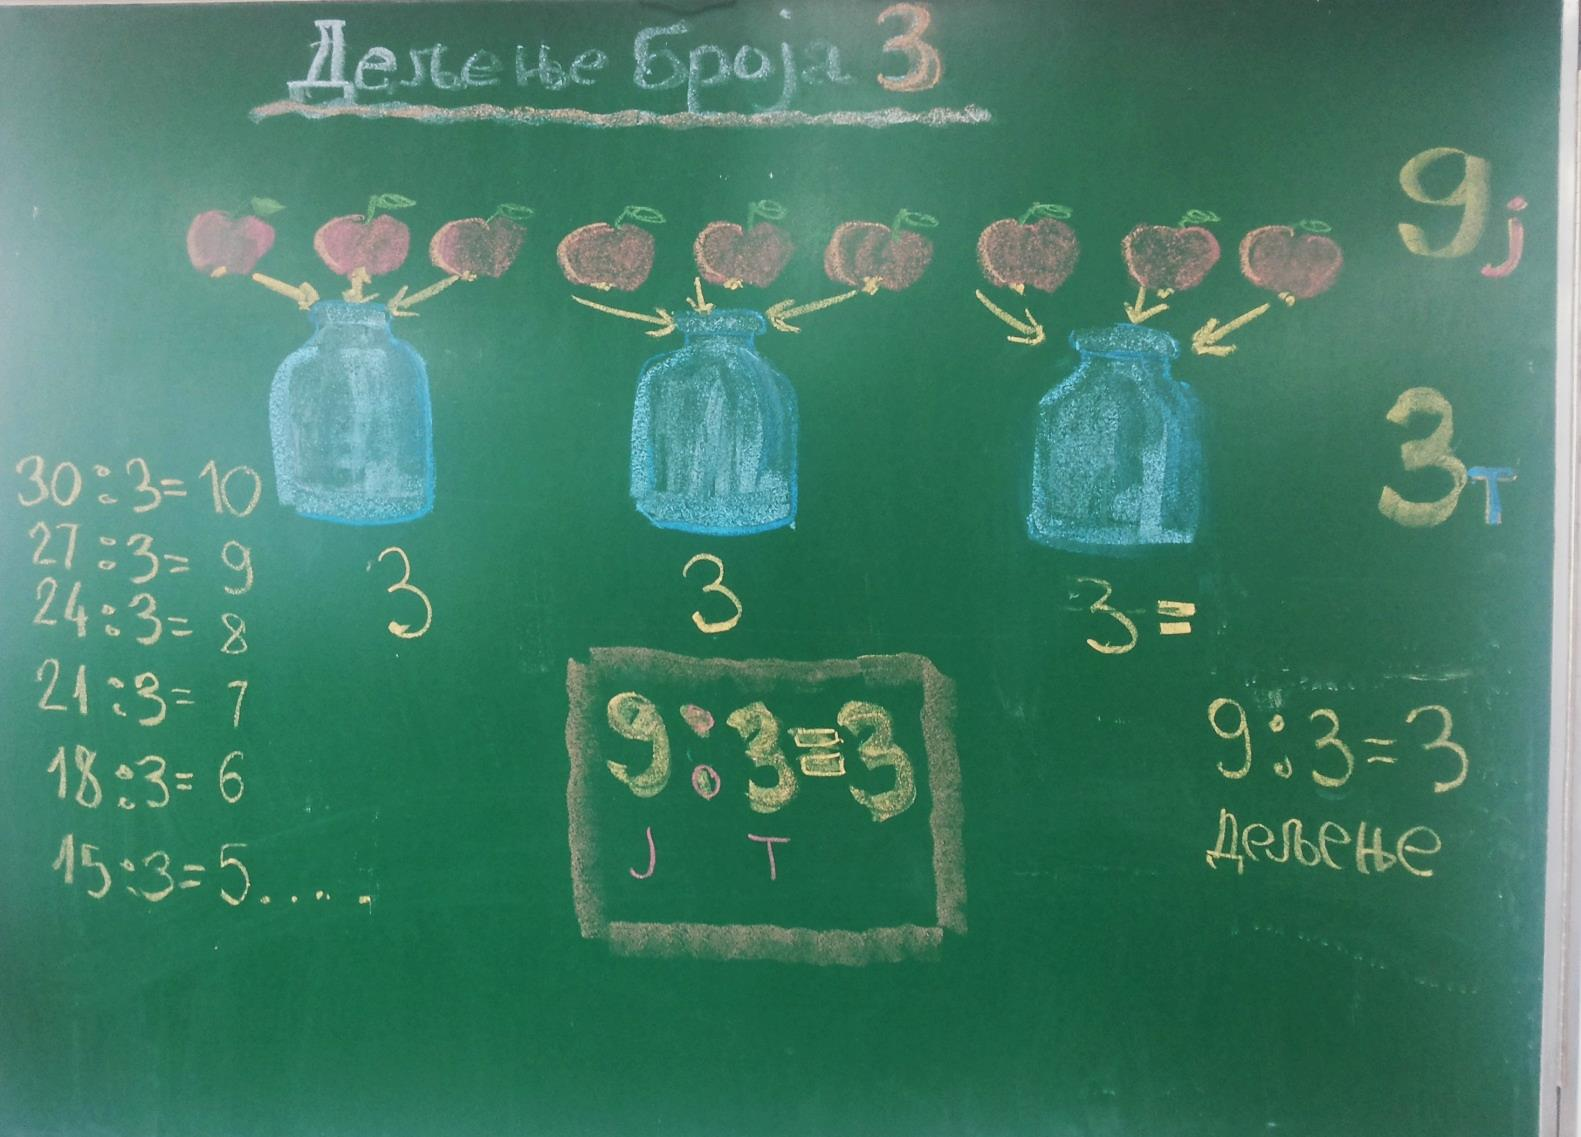 Дељење броја 3
9ј
3т
30:3=10
27:3=9
24:3=8
21:3=7
18:3=6
15:3=5.....
3 3 3=
9:3=3
Ј Т
9:3=3
дељење